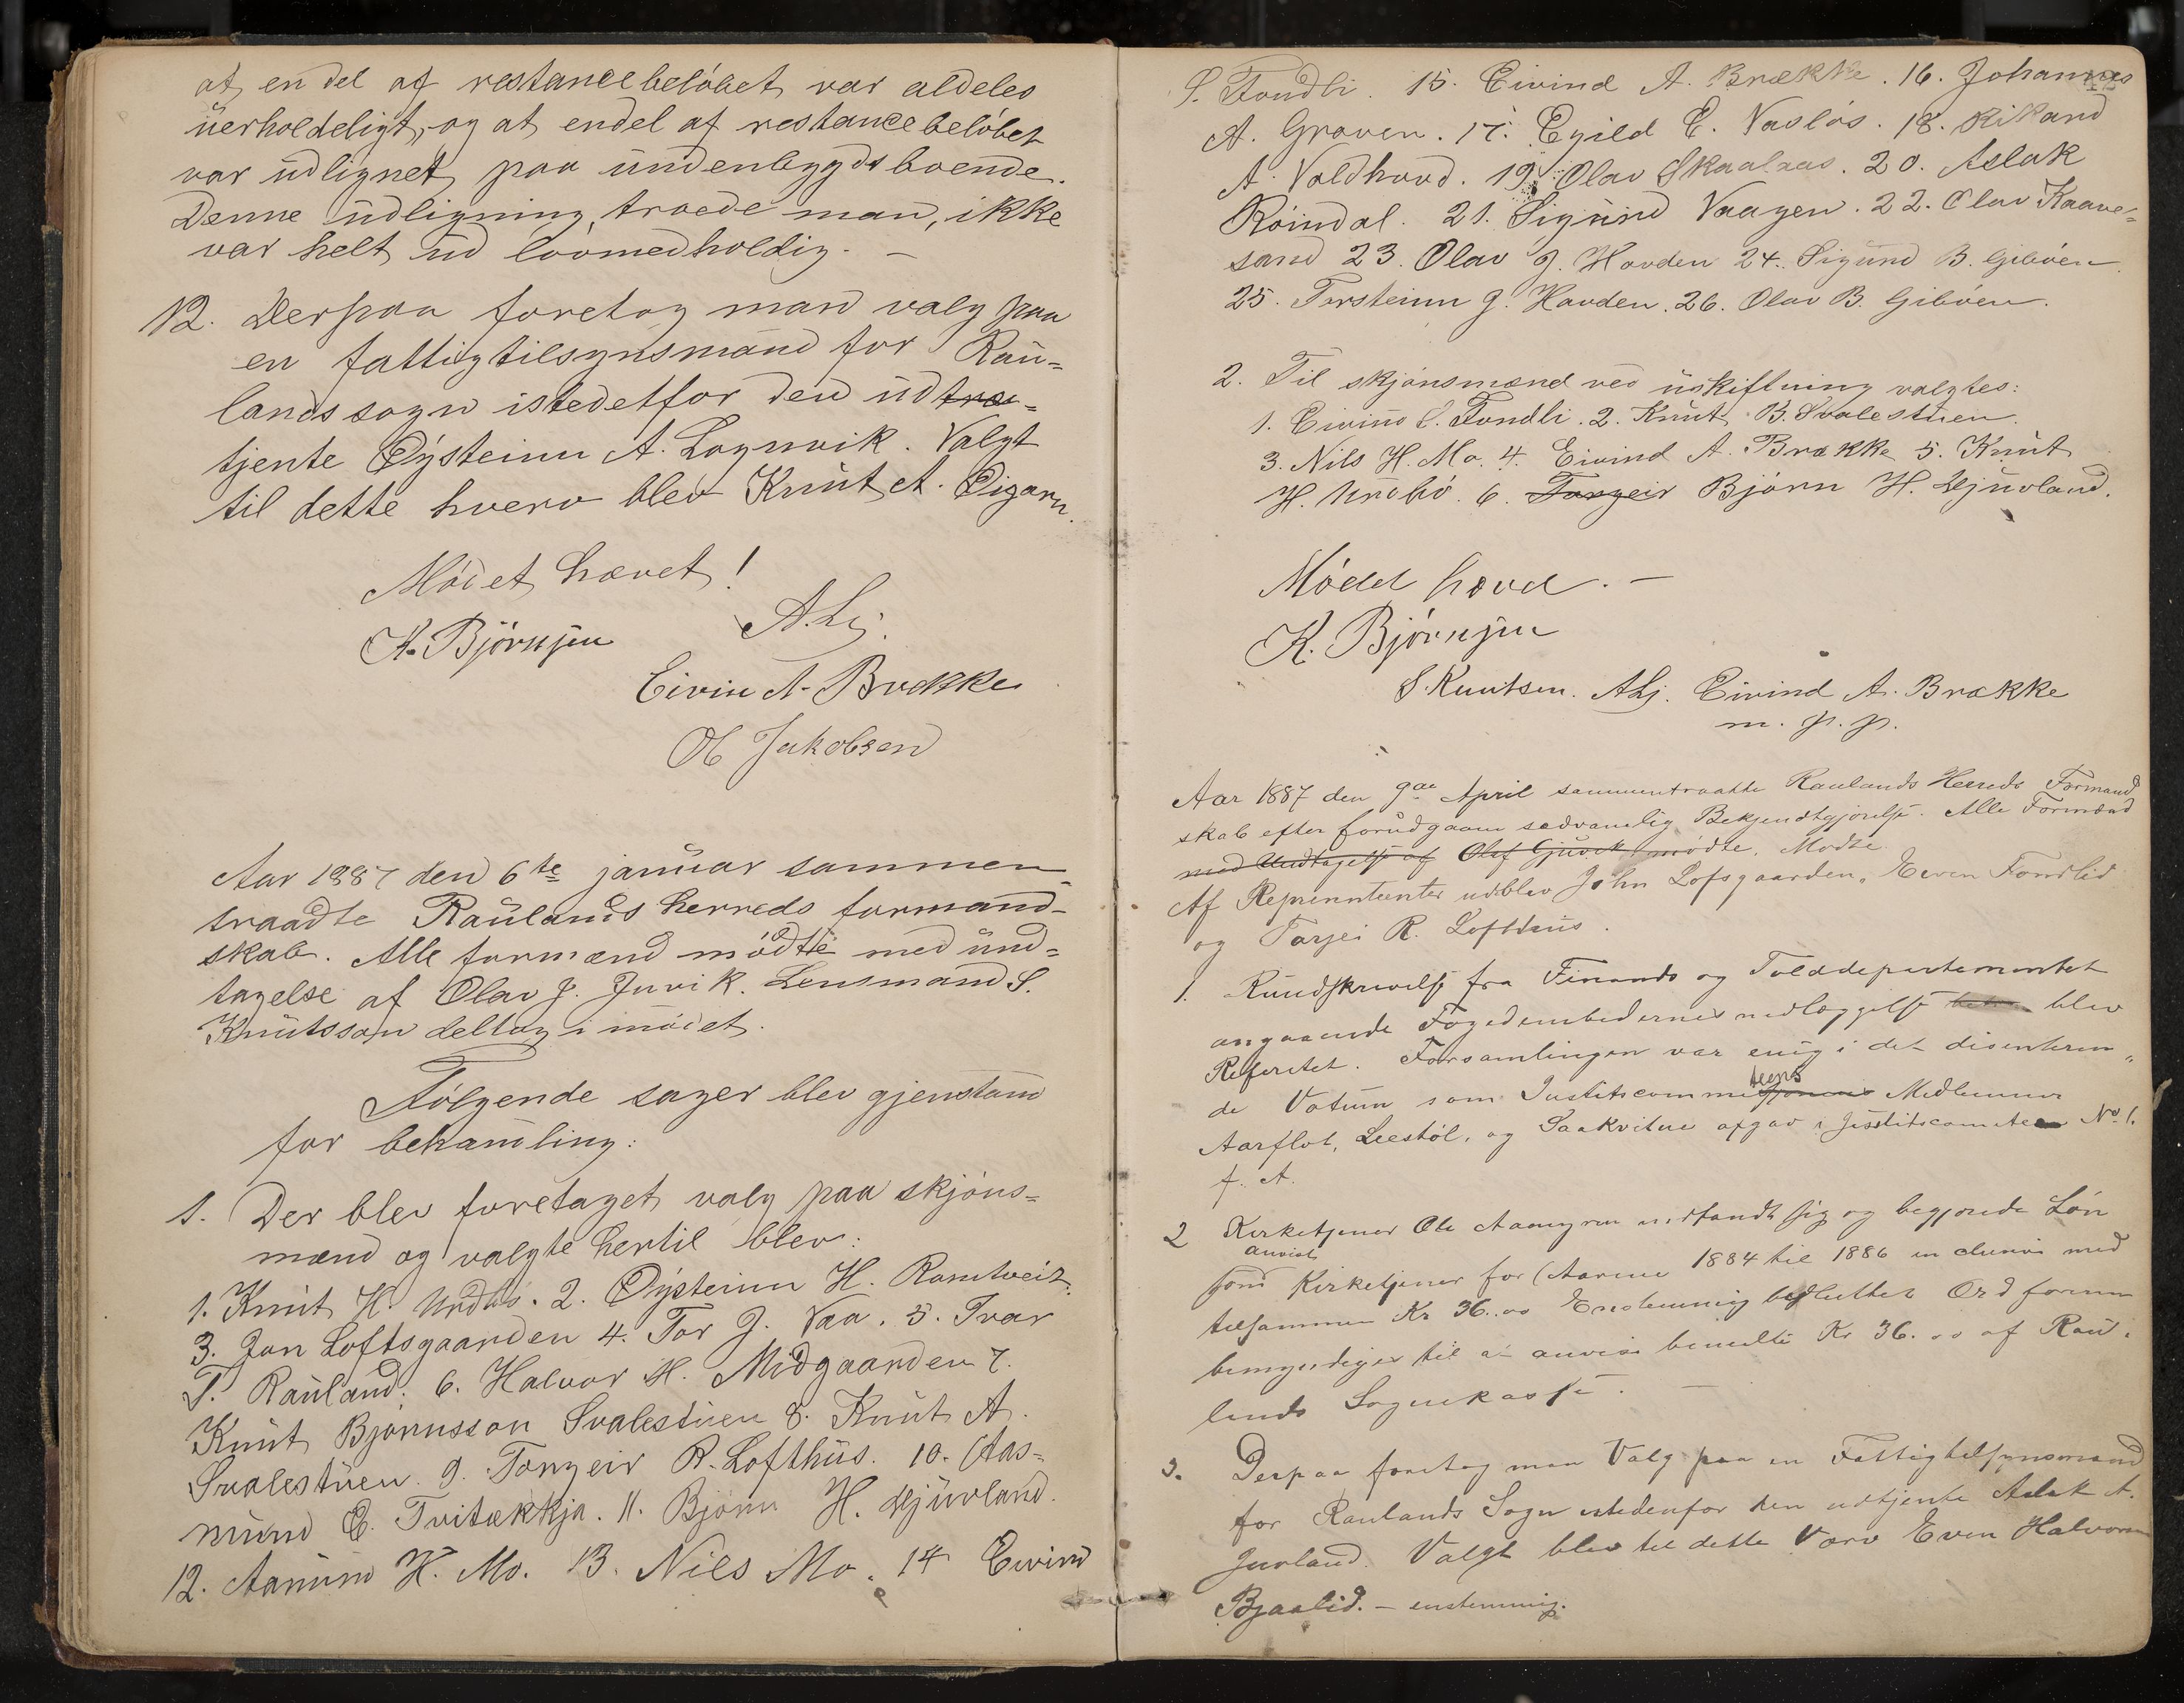 at en del af restancebeløbet var aldeles
uerholdeligt, og at endel af restancebeløbet
var udlignet paa undenbygds boende.
Denne udligning, troede man, ikke
var helt ud lovmedholdig. —
12. Derpaa foretog man valg paa
en fattigtilsynsmand for Rau-
lands sogn istedetfor den udtræ-
tjente Øysteinn A. Lognvik. Valgt
til dette hverv blev Knut A. Øigarn.
Mødet hævet!
K. Bjørnsen A. Lj.
Eivin A. Brække
Ol Jakobsen
Aar 1887 den 6te januar sammen-
traadte Raulands herreds formand-
skab. Alle formænd mødte med und-
tagelse af Olav J. Juvik. Lensmand S.
Knutsson deltog i mødet.
Følgende sager blev gjenstand
for behandling:
1. Der blev foretaget valg paa skjøns-
mænd og valgte hertil blev:
1. Knut H. Urdbø. 2. Øysteinn H. Romtveit.
3. Jon Loftsgaarden 4. Tor J. Vaa. 5. Ivar
T. Rauland. 6. Halvor H. Midgaarden 7.
Knut Bjørnsson Svalestuen 8. Knut A.
Svalestuen. 9. Torgeir R. Lofthus. 10. Aas-
mund E. Tvitækkja. 11. Bjørn H. Ljuvland.
12. Aanund H. Mo. 13. Nils Mo. 14 Eivind
S. Fondli. 15. Eivind A. Brække. 16. Johannes
A. Groven. 17. Egild E. Vasløs. 18. Rikard
A. Voldhovd. 19. Olav Skaalaas. 20. Aslak
Røindal. 21. Sigund Vaagen. 22. Olav Kaave-
sand 23. Olav J. Hovden 24. Sigund B. Gibøen.
25. Torsteinn J. Hovden. 26. Olav B. Gibøen.
2. Til skjønsmænd ved uskiftning valgtes:
1. Eivind S. Fondli. 2. Knut B. Svalestuen.
3. Nils H. Mo. 4. Eivind A. Brække 5. Knut
H. Urdbø. 6. Torgeir Bjørn H. Ljuvland.
Mødet hævet. —
K. Bjørnsen
S Knutsen. ALj. Eivind A. Brække
m. p. p.
Aar 1887 den 9de April sammentraatte Raulands Herreds Formand
skab efter forudgaaen sedvanelig Bekjendtgjørelse. Alle Formænd
med Undtagelse af Olef Gjuvik mødte. Mødte
Af Represententer udblev John Lofsgaarden, Even Fondlid
og Torjei R. Lofthus.
1. Rundskrivelse fra Finands og Tolddepartementet
angaaende Fogedembedernes nedlæggelse blev
Referetet. Forsamlingen var enig i det disenteren-
de Votum som Justitscommi teens Medlemmer
Aarflot, Leestøl, og Saakvitne afgav i Justitscomiteen No 1.
f. A.
2 Kirketjener Ole Aamyren indfandt sig og begjerede Løn
anvist
som Kirketjener for Aarene 1884 til 1886 in clusive med
tilsammen Kr 36.00 Enstemmig besluttet Ordføren
bemyndiges til at anvise bemelte Kr 36.00 af Rau-
lands Sognekasse. —
3. Derpaa foretog man Valg paa en Fattigtilsynsmand
for Raulands Sogn istedenfor den udtjente Aslak A.
Juvland. Valgt blev til dette Værv Even Halvorsen
Bjaalid. — enstemmig.